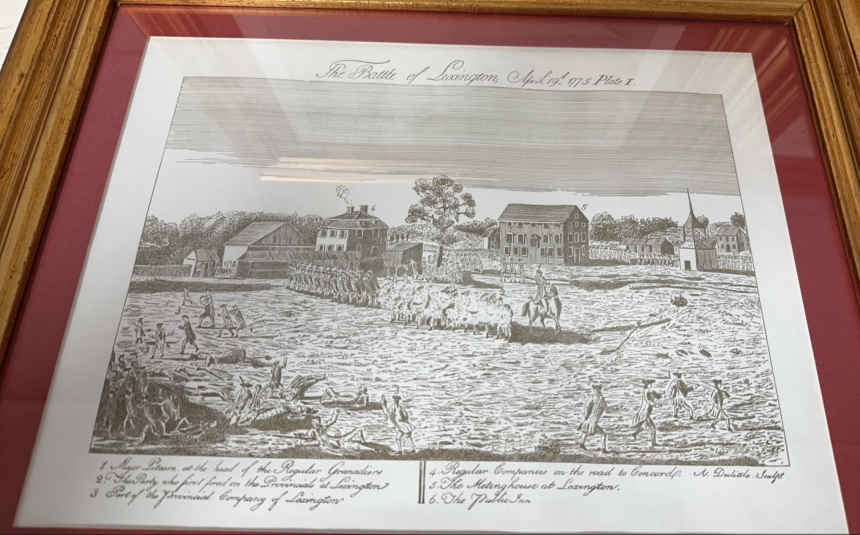 The Battle of Lexington, April 19th. 1775. Plate I.
1. Major Pitcairn at the head of the Regular Granadiers
2. The Party who first fired on the Provincials at Lexington
3 Part of the Provincial Company of Lexington
4. Regular Companies on the road to Concord.
A. Doolittle. Sculpt
5. The Metinghouse at Lexington.
6. The Public Inn